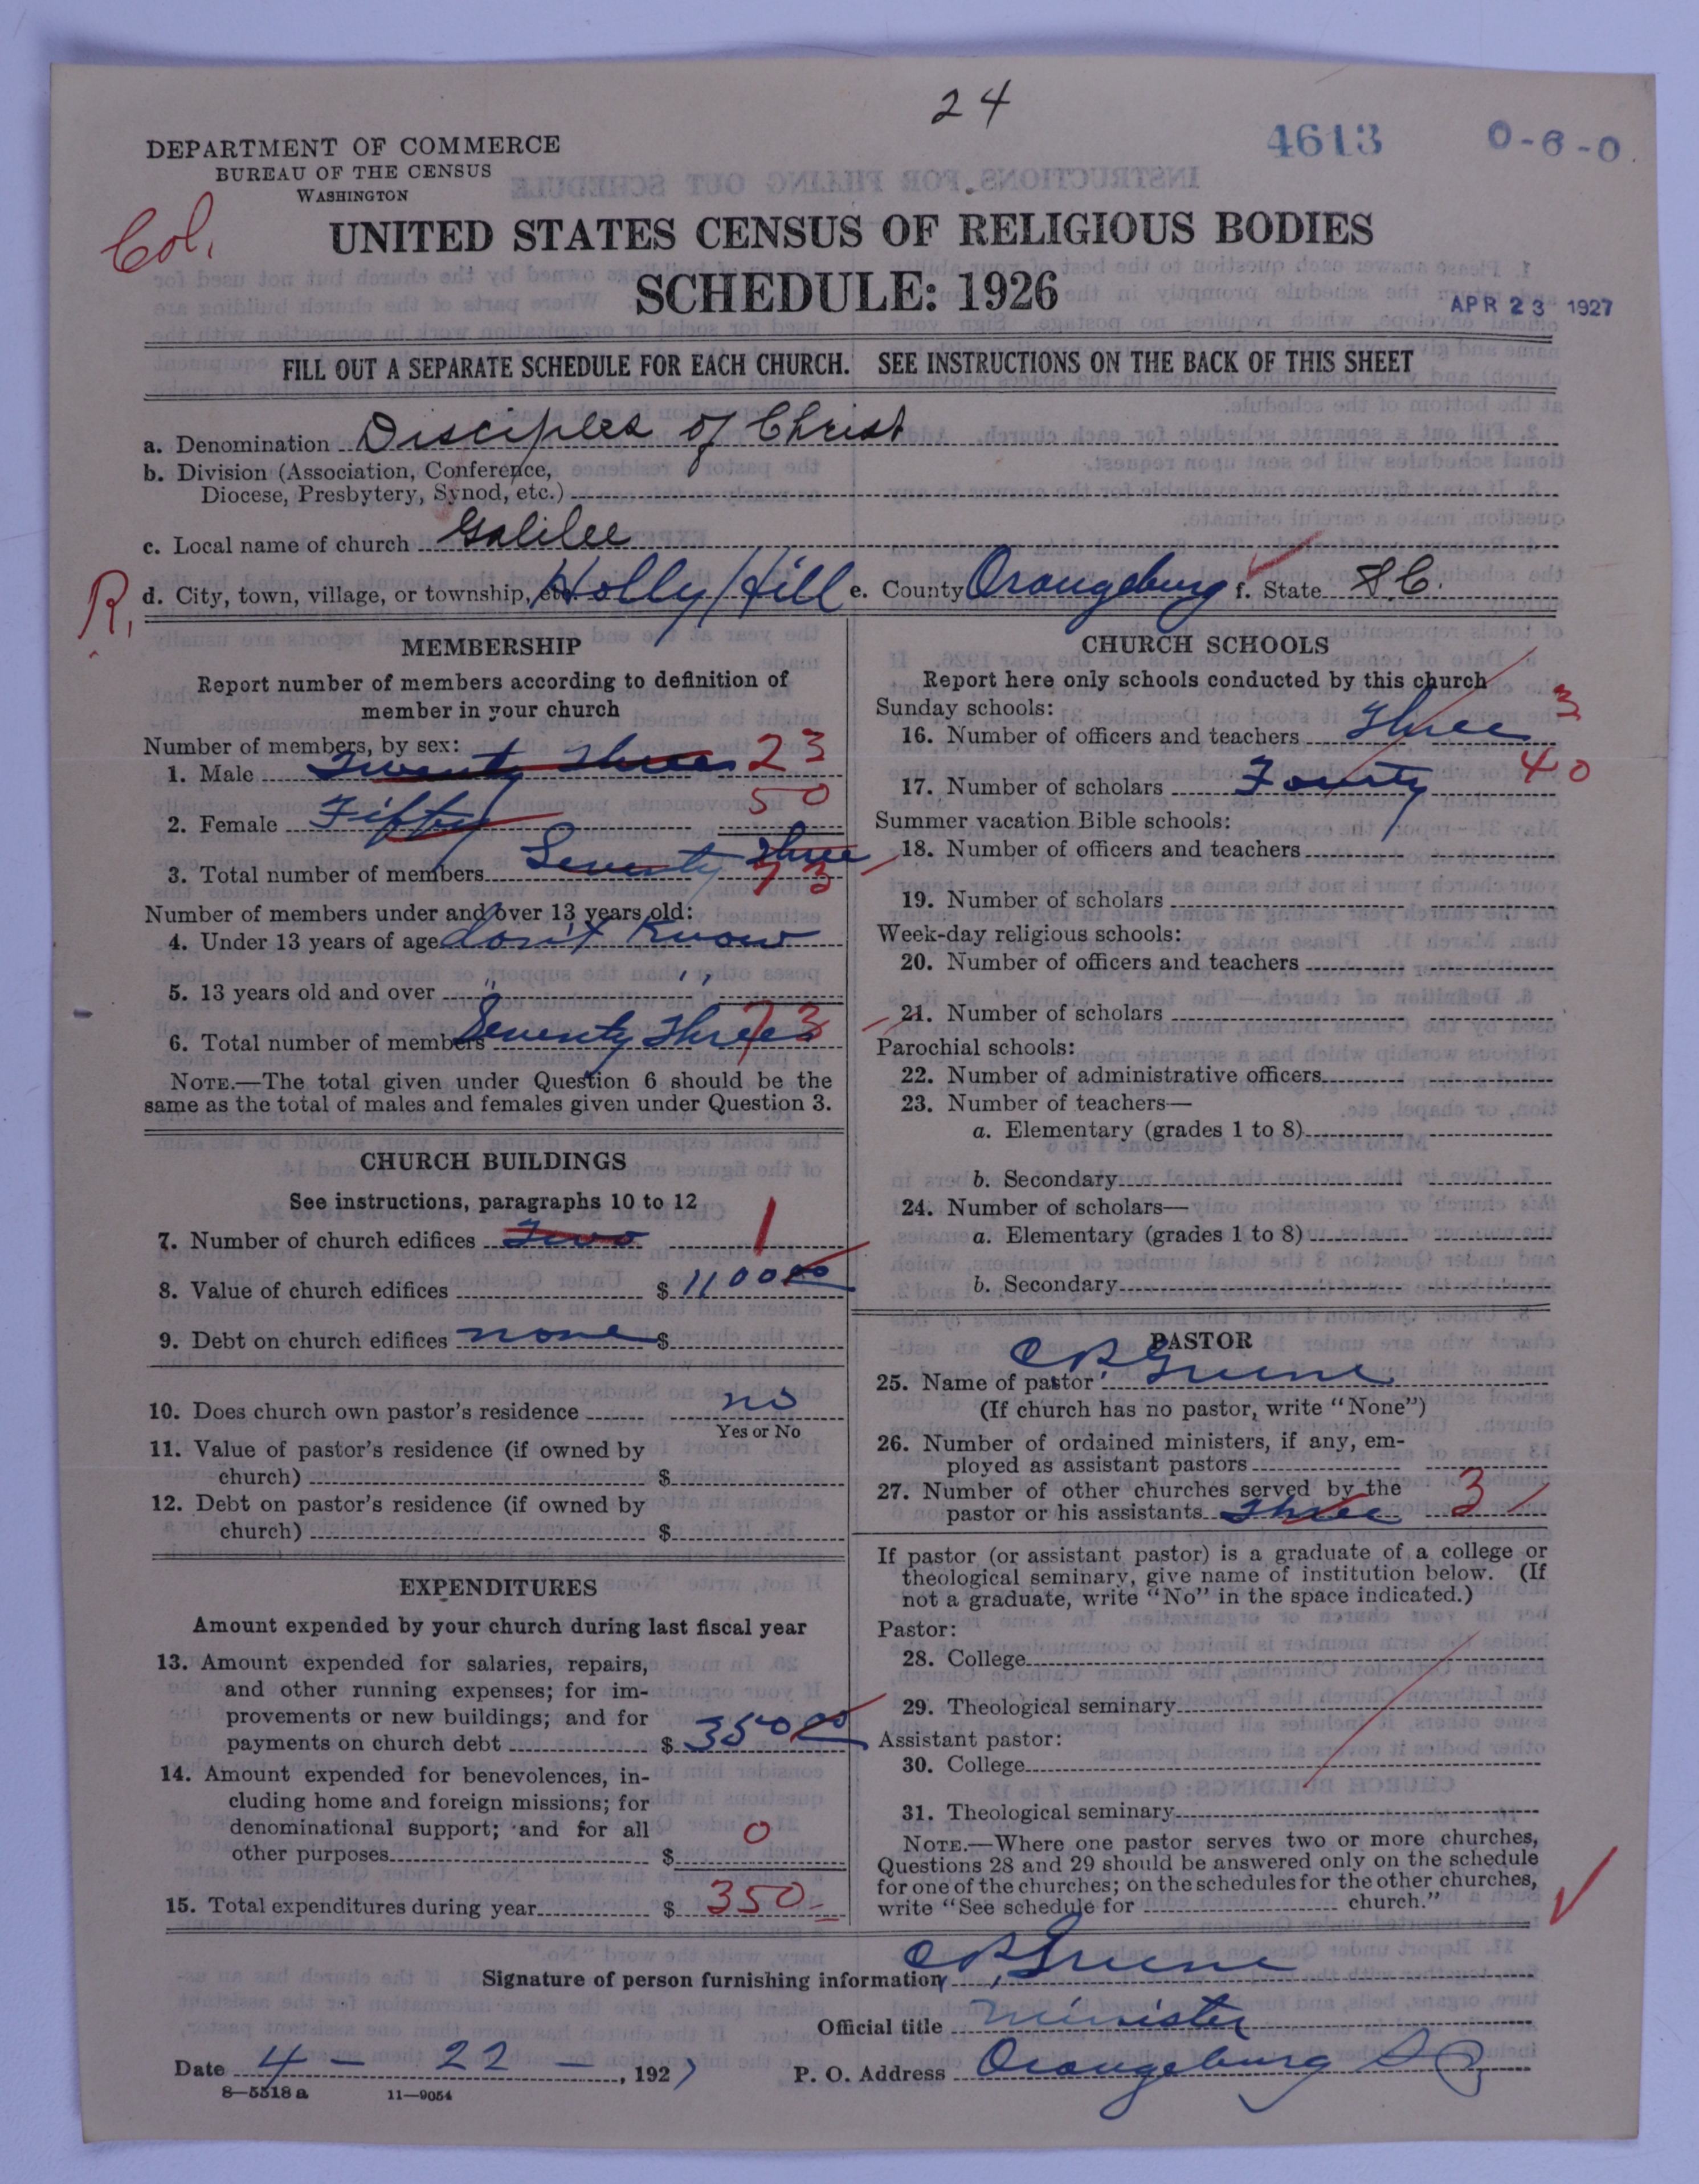 24
4613
0-6-0
DEPARTMENT OF COMMERCE
BUREAU OF THE CENSUS
WASHINGTON
Col.
UNITED STATES CENSUS OF RELIGIOUS BODIES
SCHEDULE: 1926
APR 23 1927
FILL OUT A SEPARATE SCHEDULE FOR EACH CHURCH. SEE INSTRUCTIONS ON THE BACK OF THIS SHEET
a. Denomination Disciples of Christ
b. Division (Association, Conference,
Diocese, Presbytery, Synod, etc.)
c. Local name of church Galilee
R.
d. City, town, village, or township, etc. Holly Hill e. County Orangeburg f. State S.C.
MEMBERSHIP
Report number of members according to definition of
member in your church
Number of members, by sex:
1. Male Twenty Three 23
2. Female Fifty 50
3. Total number of members Seventy Three 73
Number of members under and over 13 years old:
4. Under 13 years of age don't know
5. 13 years old and over " "
6. Total number of members Seventy Three 73
NOTE.—The total given under Question 6 should be the
same as the total of males and females given under Question 3.
CHURCH BUILDINGS
See instructions, paragraphs 10 to 12
7. Number of church edifices Two 1
8. Value of church edifices $ 1100 00
9. Debt on church edifices none $
10. Does church own pastor's residence no
Yes or No
11. Value of pastor's residence (if owned by
church) $
12. Debt on pastor's residence (if owned by
church) $
EXPENDITURES
Amount expended by your church during last fiscal year
13. Amount expended for salaries, repairs,
and other running expenses; for im-
provements or new buildings; and for
payments on church debt $ 350 00
14. Amount expended for benevolences, in-
cluding home and foreign missions; for
denominational support; and for all
other purposes $ 0
15. Total expenditures during year $ 350
CHURCH SCHOOLS
Report here only schools conducted by this church
Sunday schools:
16. Number of officers and teachers Three 3
17. Number of scholars Fourty 40
Summer vacation Bible schools:
18. Number of officers and teachers
19. Number of scholars
Week-day religious schools:
20. Number of officers and teachers
21. Number of scholars
Parochial schools:
22. Number of administrative officers
23. Number of teachers—
a. Elementary (grades 1 to 8)
b. Secondary
24. Number of scholars—
a. Elementary (grades 1 to 8)
b. Secondary
PASTOR
25. Name of pastor C B Greene
(If church has no pastor, write "None")
26. Number of ordained ministers, if any, em-
ployed as assistant pastors
27. Number of other churches served by the
pastor or his assistants Three 3
If pastor (or assistant pastor) is a graduate of a college or
theological seminary, give name of institution below. (If
not a graduate, write "No" in the space indicated.)
Pastor:
28. College
29. Theological seminary
Assistant pastor:
30. College
31. Theological seminary
NOTE.—Where one pastor serves two or more churches,
Questions 28 and 29 should be answered only on the schedule
for one of the churches; on the schedules for the other churches,
write "See schedule for church."
Signature of person furnishing information C B Greene
Official title Minister
Date 4 - 22 -, 1927 P. O. Address Orangeburg S C
8—5518 a 11—9054